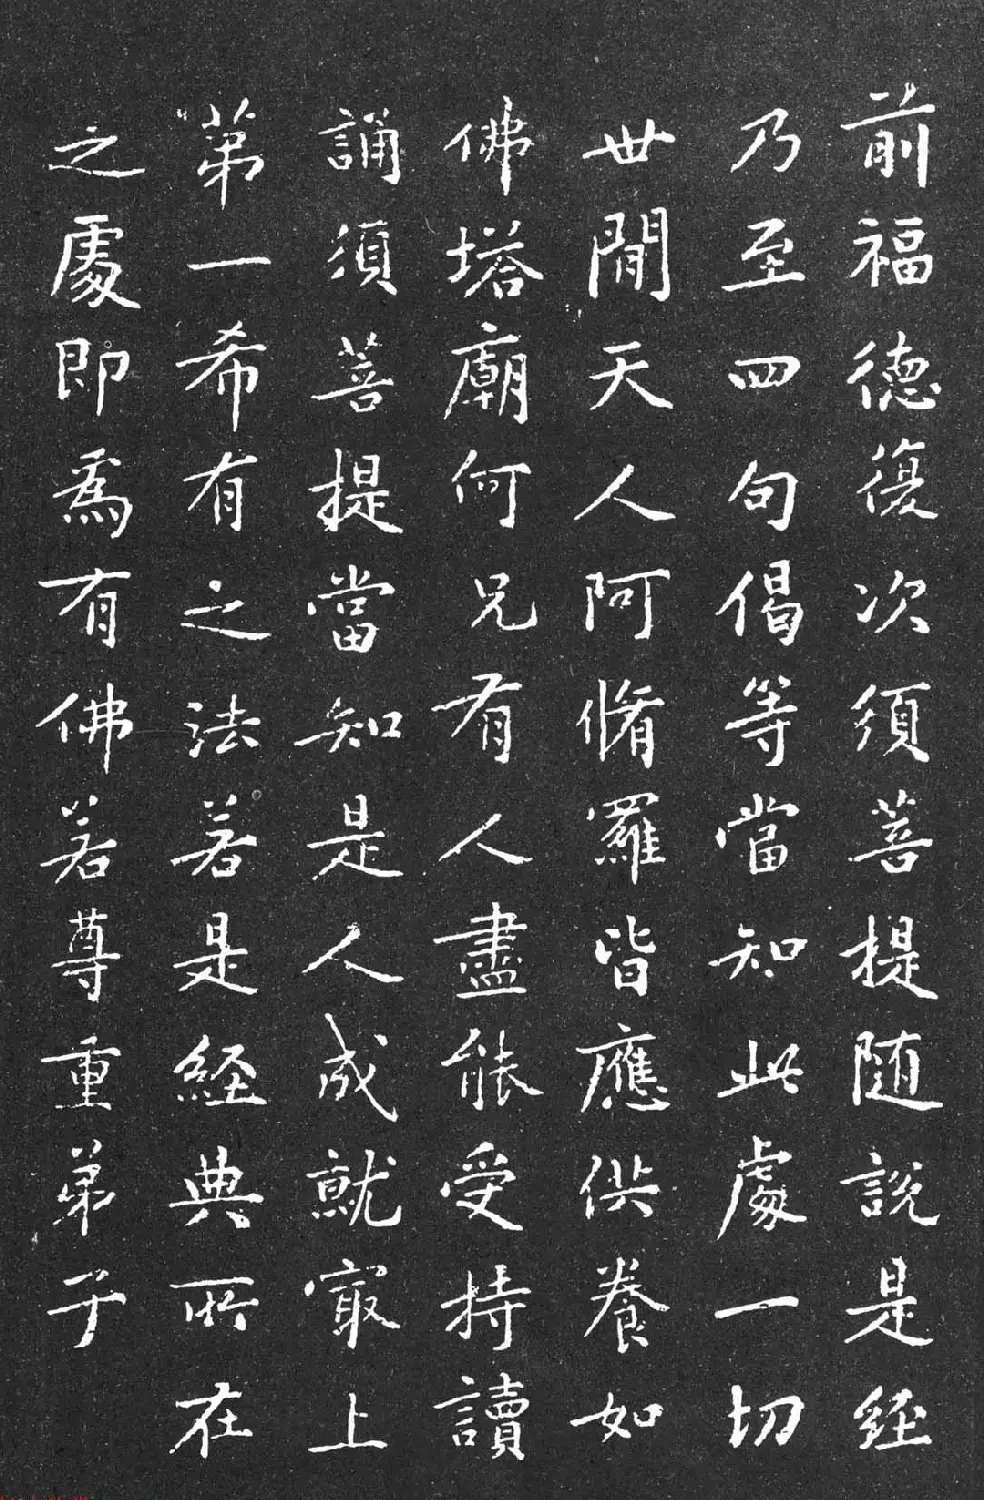 前福德復次須菩提随說是經
乃至四句偈等當知此處一切
世間天人阿脩羅皆應供養如
佛塔廟何況有人盡能受持讀
誦須菩提當知是人成就冣上
苐一希有之法若是經典所在
之處即為有佛若尊重弟子